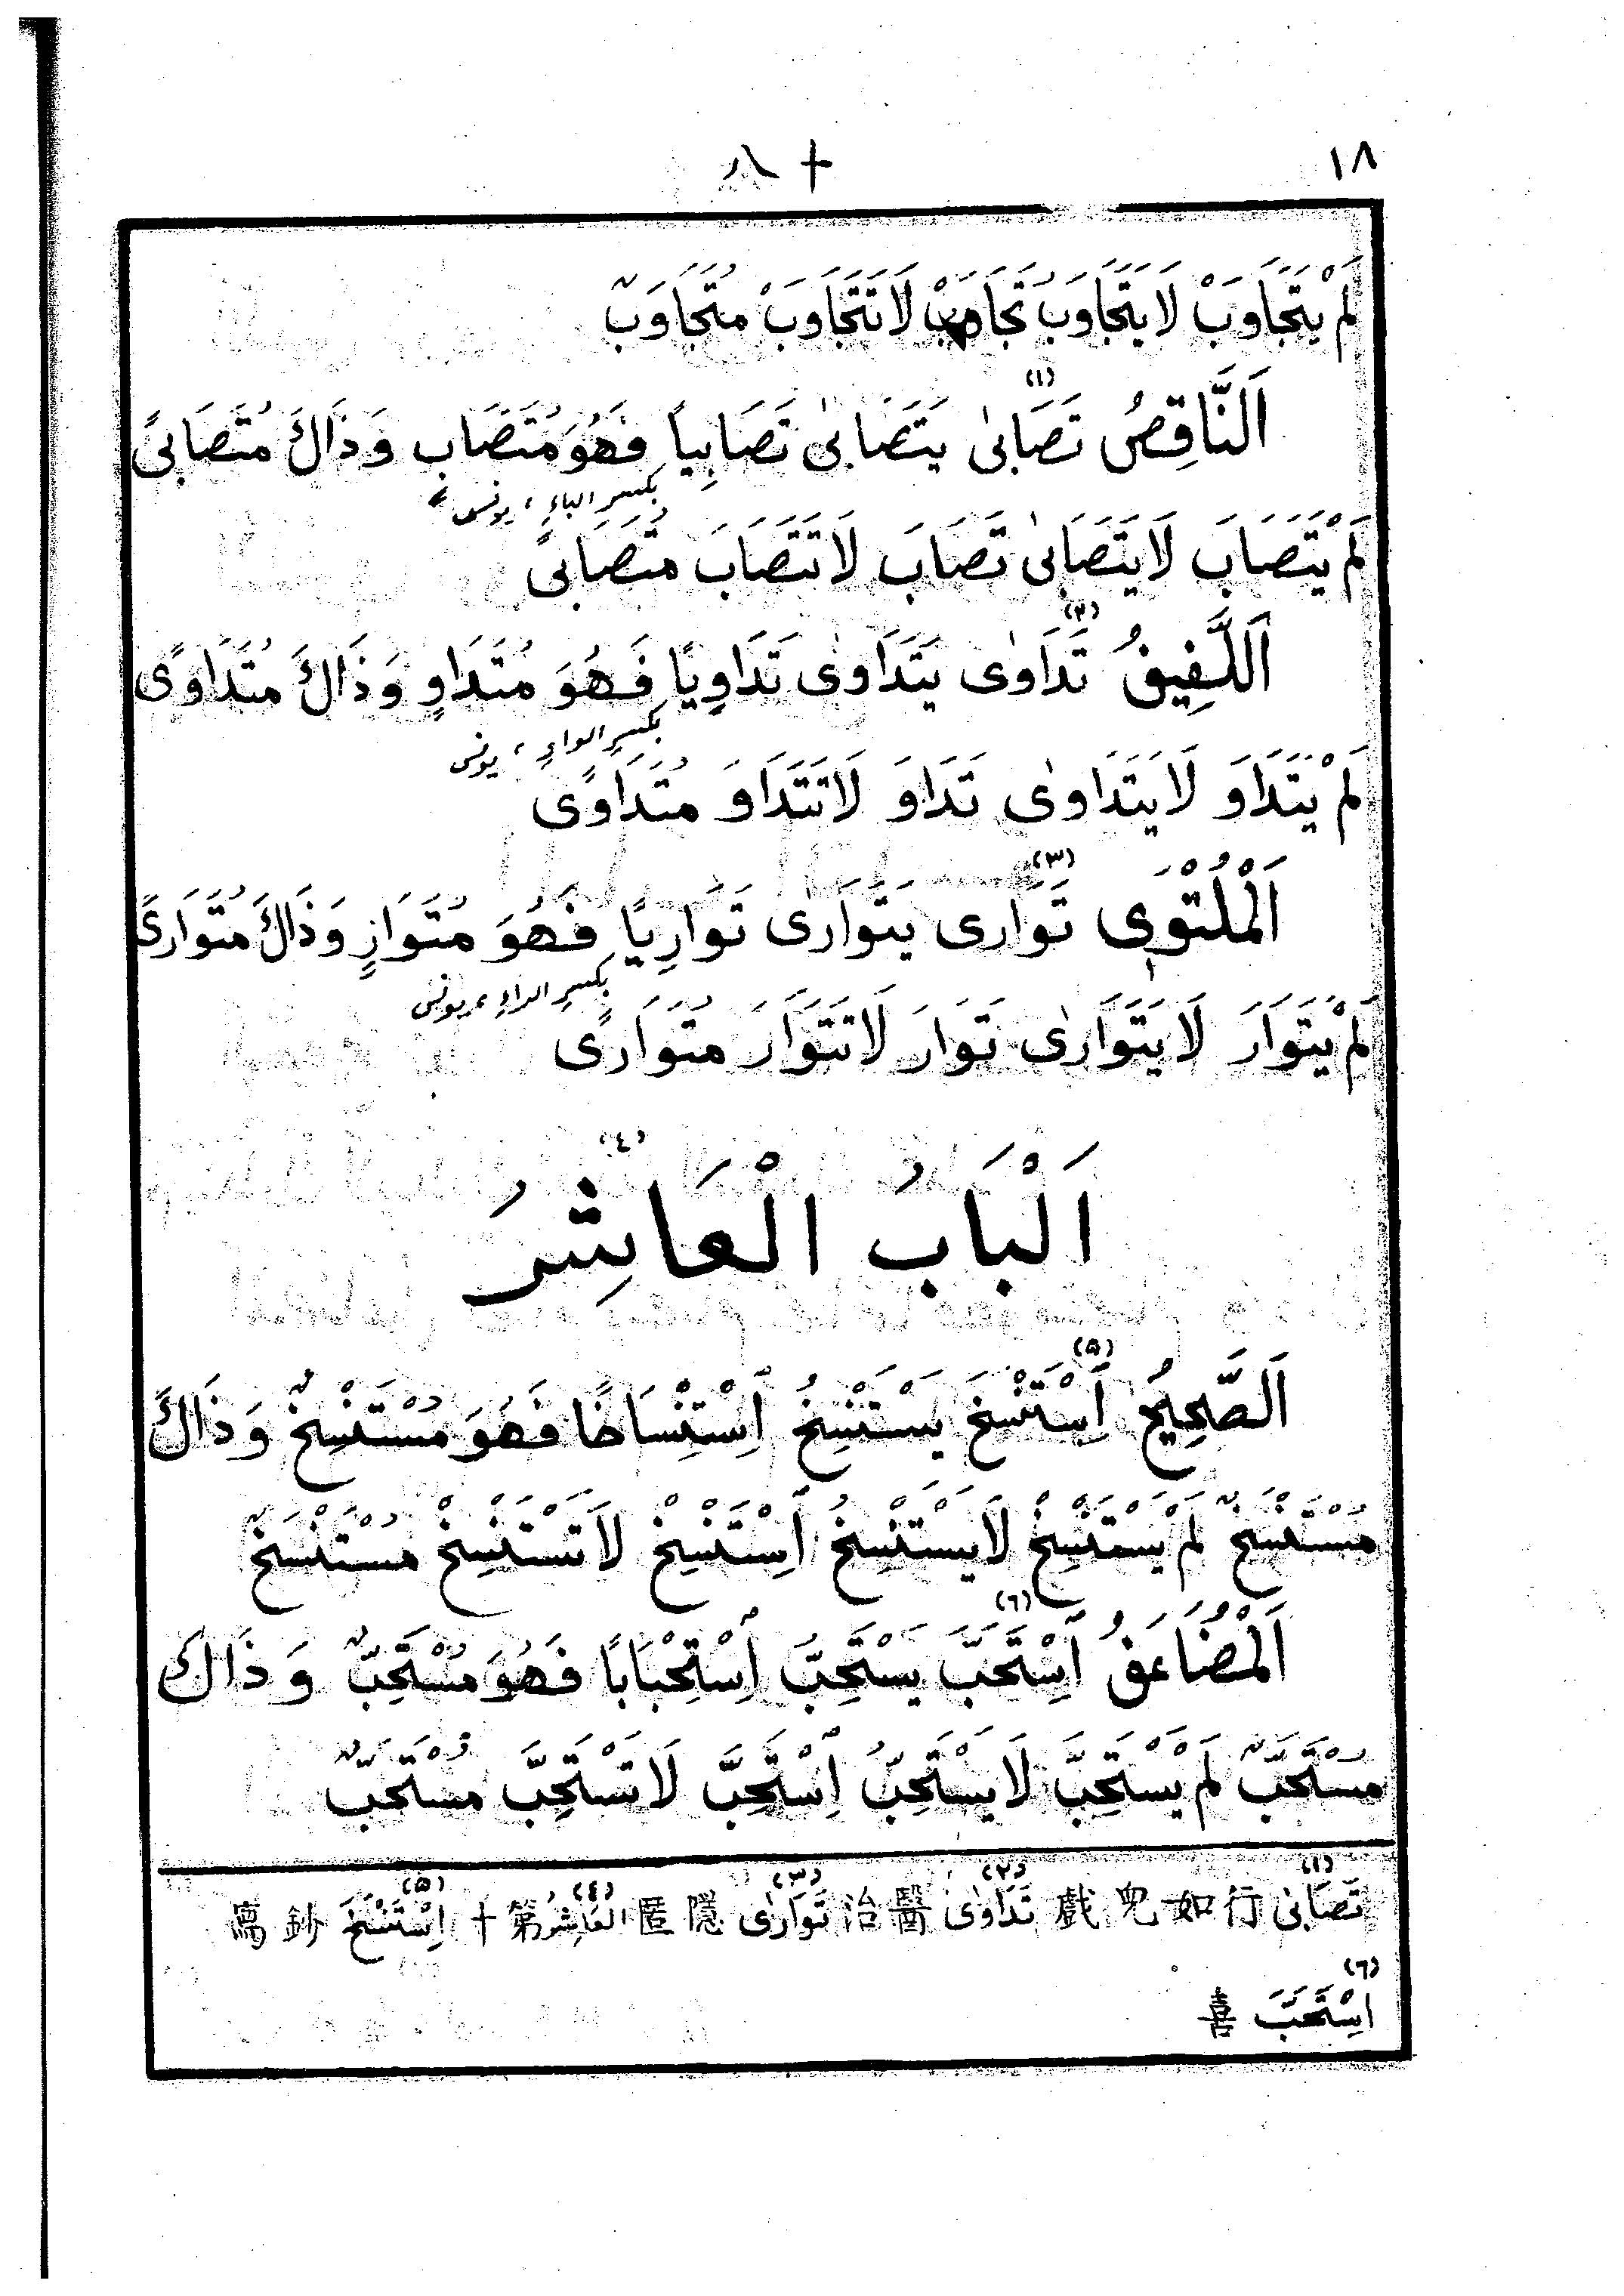 ١٨
لَمْ يَتَجَاوَبْ لَا يَتَجَاوَبُ تَجَاوَبْ لَا تَتَجَاوَبْ مُتَجَاوَبٌ
اَلنَّاقِصُ تَصَابَىٰ (١) يَتَصَابَىٰ تَصَابِياً فَهُوَ مُتَصَابٍ وَذَاكَ مُتَصَابًى
بكسرِ الباءِ ، يونس
لَمْ يَتَصَابَ لَا يَتَصَابَىٰ تَصَابَ لَا تَتَصَابَ مُتَصَابًى
اَللَّفِيفُ تَدَاوَىٰ (٢) يَتَدَاوَىٰ تَدَاوِيًا فَهُوَ مُتَدَاوٍ وَذَاكَ مُتَدَاوًى
بكسرِ الواوِ ، يونس
لَمْ يَتَدَاوَ لَا يَتَدَاوَىٰ تَدَاوَ لَا تَتَدَاوَ مُتَدَاوًى
اَلْمُلْتَوِى تَوَارَى (٣) يَتَوَارَىٰ تَوَارِيًا فَهُوَ مُتَوَازٍ وَذَاكَ مُتَوَارًى
بكسرِ الراءِ ، يونس
لَمْ يَتَوَارَ لَا يَتَوَارَىٰ تَوَارَ لَا تَتَوَارَ مُتَوَارًى
اَلْبَابُ الْعَاشِرُ (٤)
اَلصَّحِيحُ اِسْتَنْسَخَ (٥) يَسْتَنْسِخُ اِسْتِنْسَاخًا فَهُوَ مُسْتَنْسِخٌ وَذَاكَ
مُسْتَنْسَخٌ لَمْ يَسْتَنْسِخْ لَا يَسْتَنْسِخُ اِسْتَنْسِخْ لَا تَسْتَنْسِخْ مُسْتَنْسَخٌ
اَلْمُضَاعَفُ اِسْتَحَبَّ (٦) يَسْتَحِبُّ اِسْتِحْبَابًا فَهُوَ مُسْتَحِبٌّ وَذَاكَ
مُسْتَحَبٌّ لَمْ يَسْتَحِبَّ لَا يَسْتَحِبُّ اِسْتَحِبَّ لَا تَسْتَحِبَّ مُسْتَحَبٌّ
(١) تَصَابَىٰ 行如兒戲 (٢) تَدَاوَىٰ 醫治 (٣) تَوَارَىٰ 隱匿 (٤) العَاشِرُ 第十 (٥) اِسْتَنْسَخَ 鈔寫
(٦) اِسْتَحَبَّ 喜